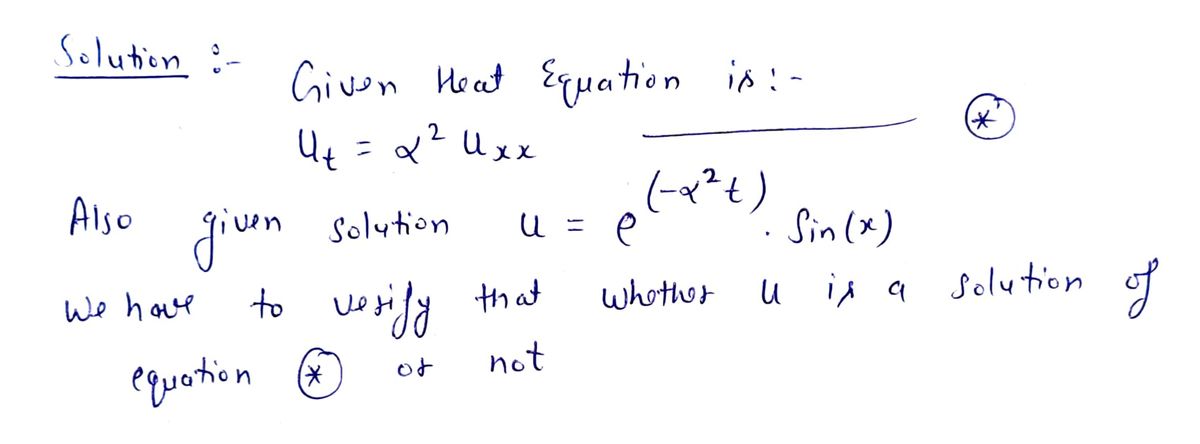 Solution :-
Given Heat Equation is :-
u_t = α² u_xx ——— (*)
Also given solution u = e^(-α²t) . Sin(x)
We have to verify that whether u is a solution of
equation (*) or not